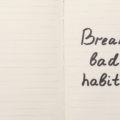 Brea
bad
habit